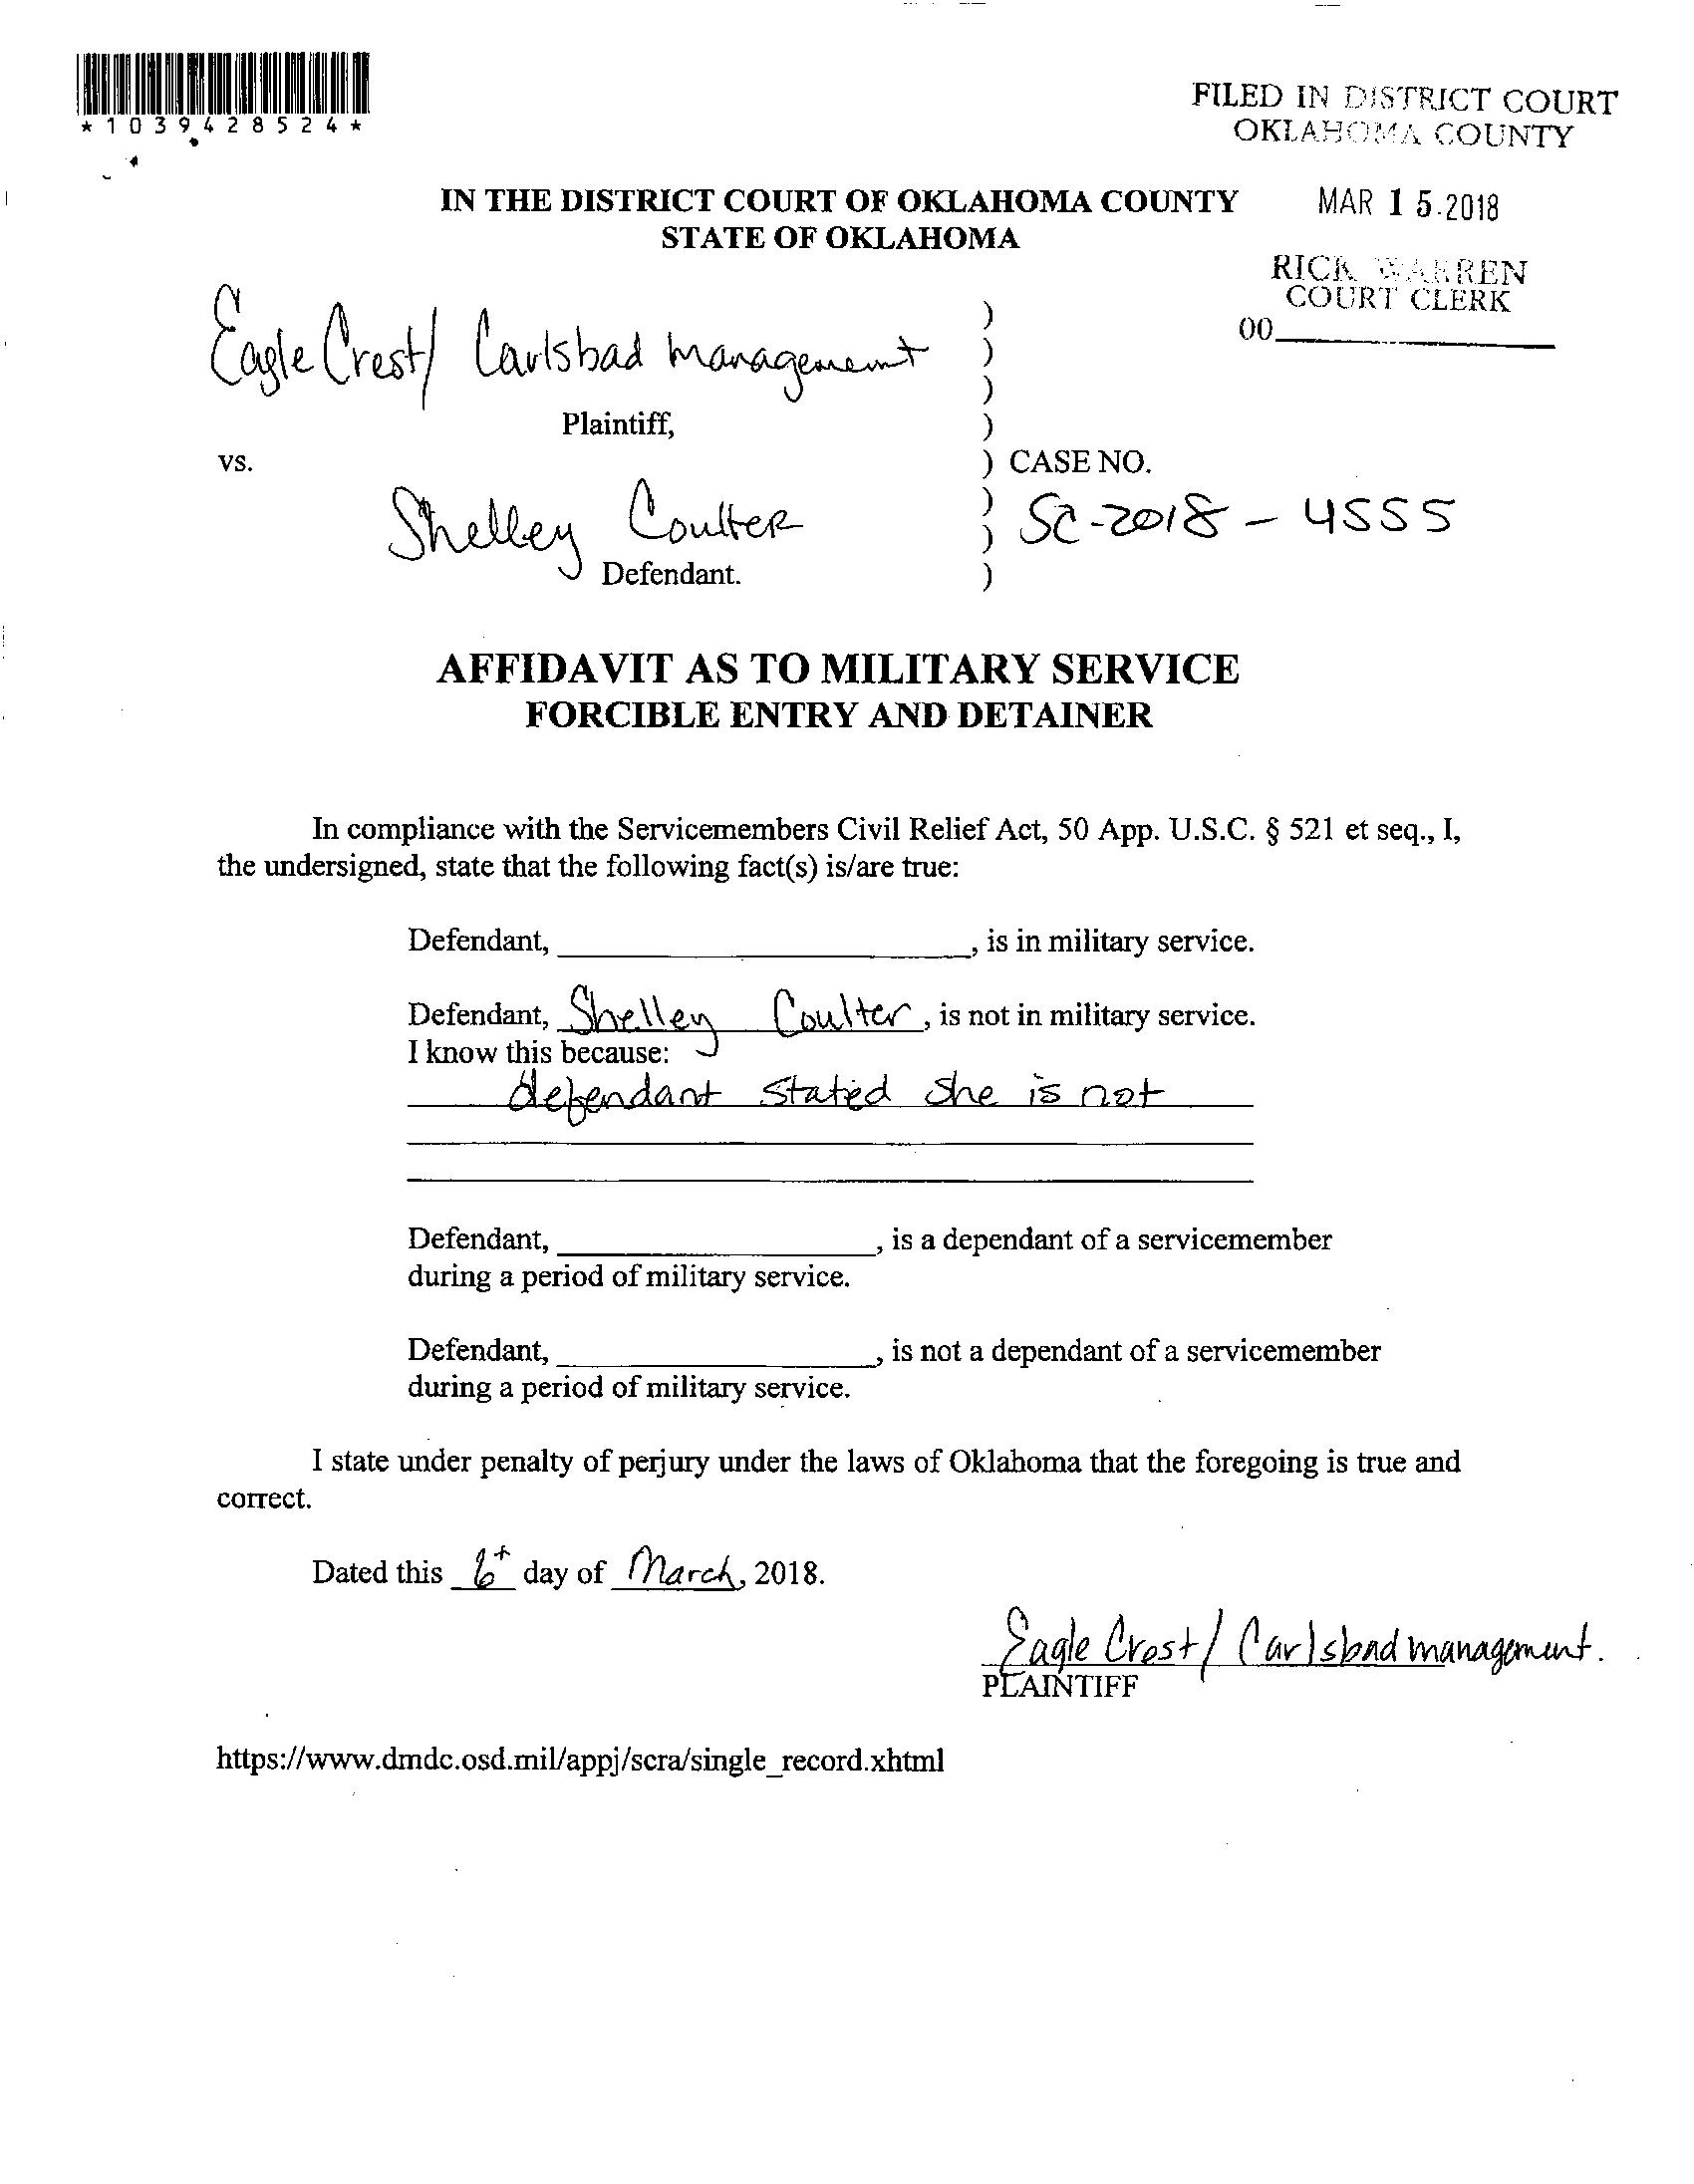 *1039428524*
FILED IN DISTRICT COURT
OKLAHOMA COUNTY
MAR 15 2018
RICK WARREN
COURT CLERK
00
IN THE DISTRICT COURT OF OKLAHOMA COUNTY
STATE OF OKLAHOMA
Eagle Crest/ Carlsbad management
Plaintiff,
vs.
) CASE NO.
Shelley Coulter
SC-2018-4555
Defendant.
AFFIDAVIT AS TO MILITARY SERVICE
FORCIBLE ENTRY AND DETAINER
In compliance with the Servicemembers Civil Relief Act, 50 App. U.S.C. § 521 et seq., I,
the undersigned, state that the following fact(s) is/are true:
Defendant, ____________________, is in military service.
Defendant, Shelley Coulter, is not in military service.
I know this because:
defendant stated she is not
Defendant, ____________________, is a dependant of a servicemember
during a period of military service.
Defendant, ____________________, is not a dependant of a servicemember
during a period of military service.
I state under penalty of perjury under the laws of Oklahoma that the foregoing is true and
correct.
Dated this 6t day of March, 2018.
Eagle Crest/ Carlsbad management.
PLAINTIFF
https://www.dmdc.osd.mil/appj/scra/single_record.xhtml